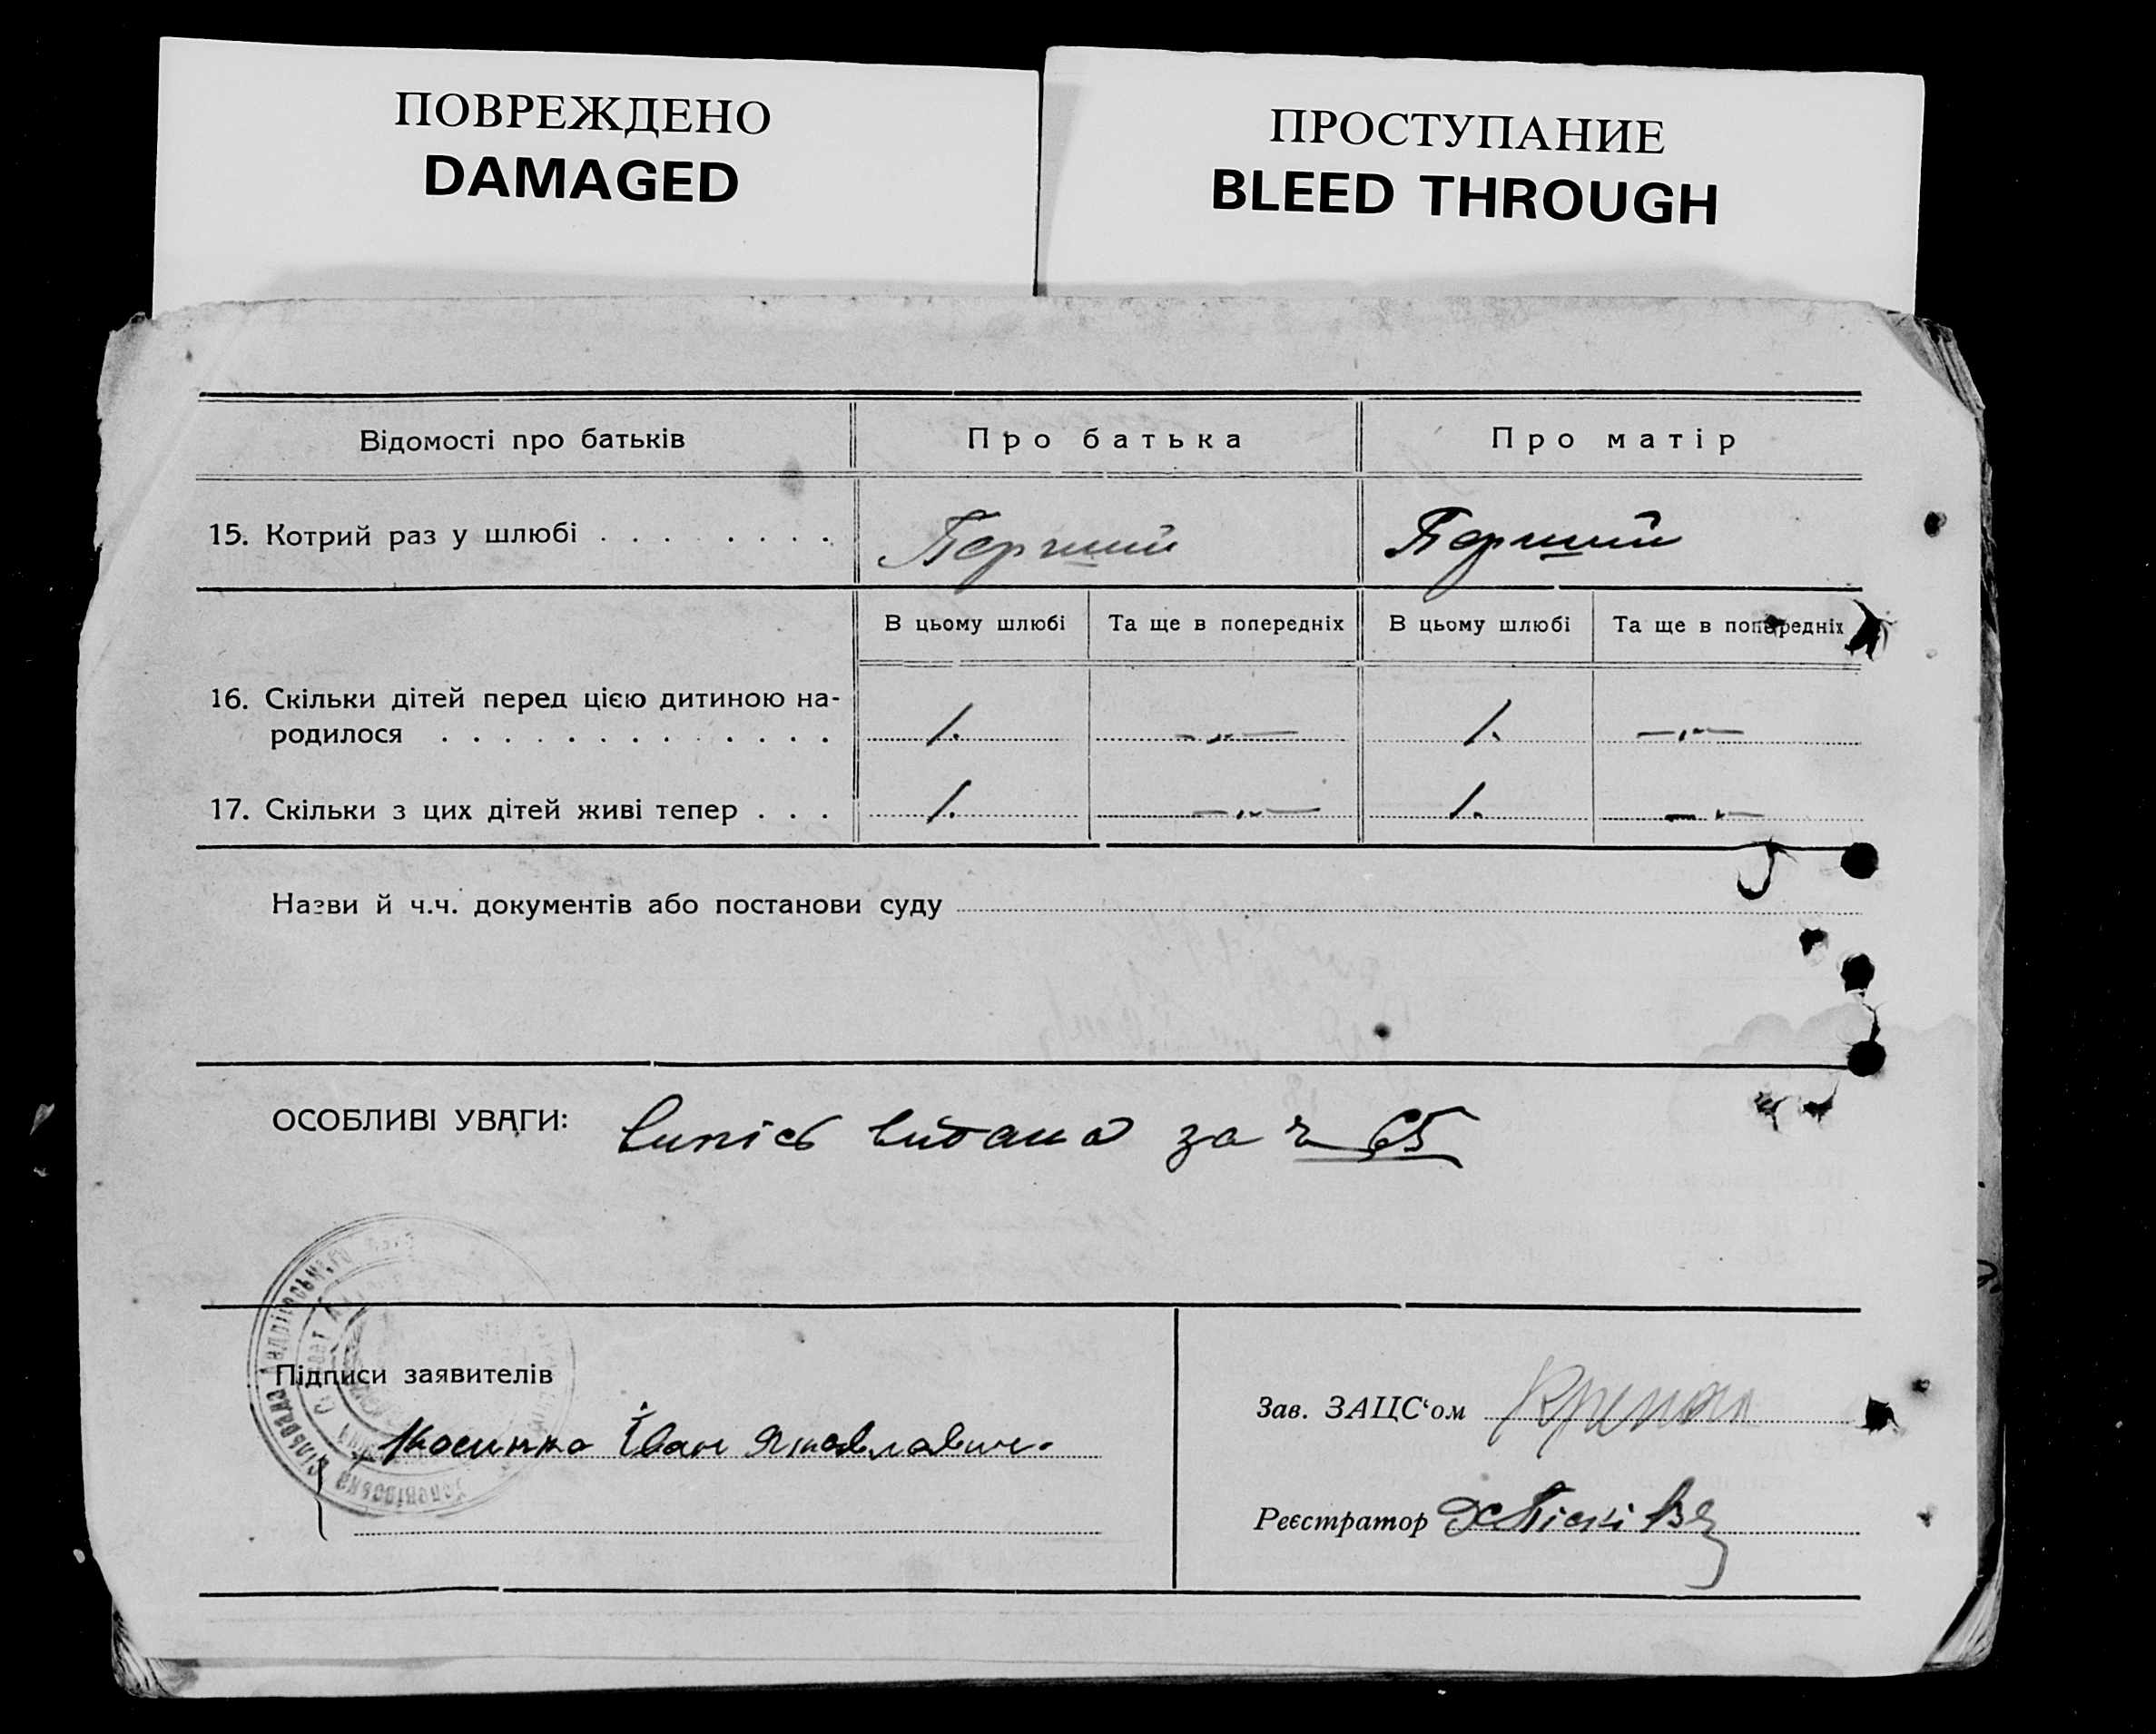 ПОВРЕЖДЕНО
DAMAGED
ПРОСТУПАНИЕ
BLEED THROUGH
Відомості про батьків
Про батька
Про матір
15. Котрий раз у шлюбі . . . . . . . .
Перший
Перший
В цьому шлюбі
Та ще в попередніх
В цьому шлюбі
Та ще в попередніх
16. Скільки дітей перед цією дитиною на-
родилося . . . . . . . . . . . . . .
1.
—„—
1.
—„—
17. Скільки з цих дітей живі тепер . . .
1.
—„—
1.
—„—
Назви й ч.ч. документів або постанови суду
ОСОБЛИВІ УВАГИ:
Випісь видана за ч 65
Підписи заявителів
Іван Яковлавич.
Зав. ЗАЦС‘ом
Реєстратор